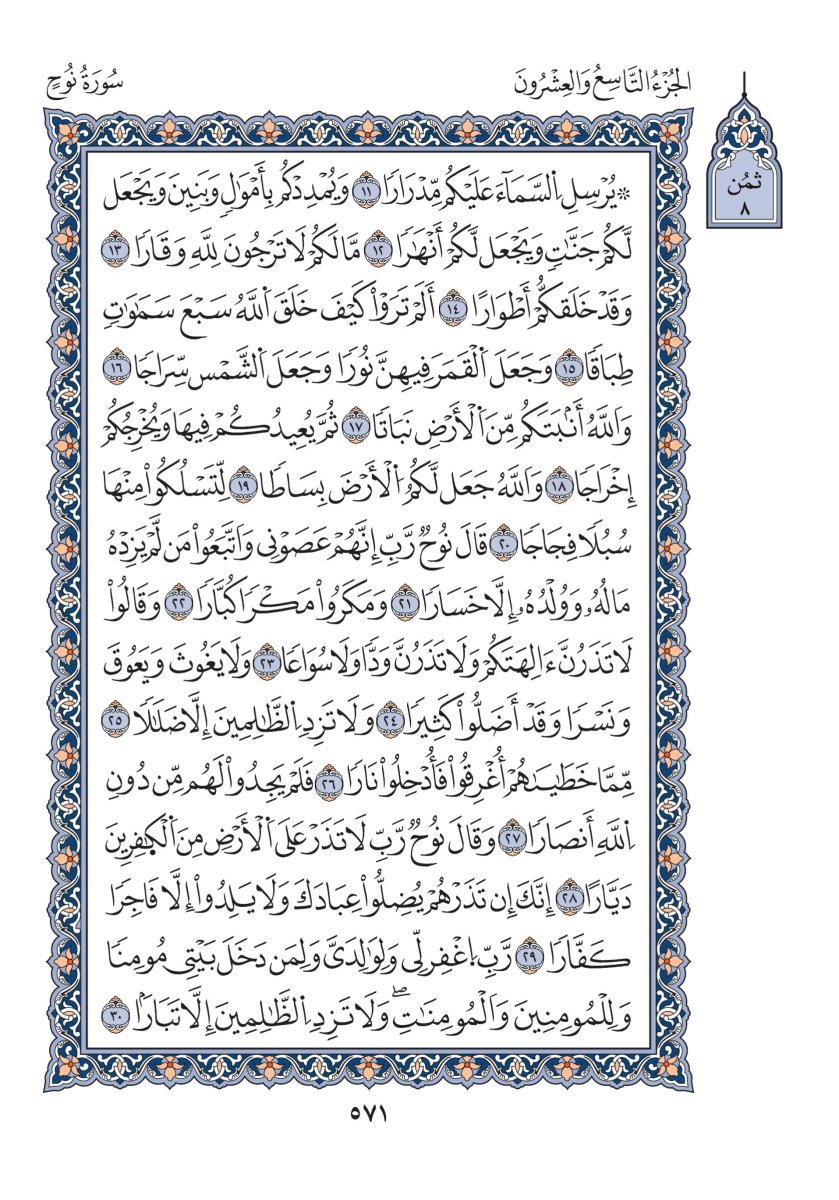 الجُزْءُ التَّاسِعُ وَالعِشْرُونَ
سُورَةُ نُوحٍ
ثمُن
٨
۞ يُرْسِلِ اِ۬لسَّمَآءَ عَلَيْكُم مِّدْرَارًا ١١ وَيُمْدِدْكُم بِأَمْوَٰلٍ وَبَنِينَ وَيَجْعَل
لَّكُمْ جَنَّٰتٍ وَيَجْعَل لَّكُمْ أَنْهَٰرًا ١٢ مَّا لَكُمْ لَا تَرْجُونَ لِلَّهِ وَقَارًا ١٣
وَقَدْ خَلَقكُّمْ أَطْوَارًا ١٤ أَلَمْ تَرَوْاْ كَيْفَ خَلَقَ اَ۬للَّهُ سَبْعَ سَمَٰوَٰتٍ
طِبَاقًا ١٥ وَجَعَلَ اَ۬لْقَمَرَ فِيهِنَّ نُورًا وَجَعَلَ اَ۬لشَّمْس سِّرَاجًا ١٦
وَاَللَّهُ أَنۢبَتَكُم مِّنَ اَ۬لْأَرْضِ نَبَاتًا ١٧ ثُمَّ يُعِيدُكُمْ فِيهَا وَيُخْرِجُكُمْ
إِخْرَاجًا ١٨ وَاَللَّهُ جَعَل لَّكُمُ اُ۬لْأَرْضَ بِسَاطًا ١٩ لِّتَسْلُكُواْ مِنْهَا
سُبُلًا فِجَاجًا ٢٠ قَالَ نُوحٌ رَّبِّ إِنَّهُمْ عَصَوْنِي وَاَتَّبَعُواْ مَن لَّمْ يَزِدْهُ
مَالُهُۥ وَوُلْدُهُۥ إِلَّا خَسَارًا ٢١ وَمَكَرُواْ مَكْرًا كُبَّارًا ٢٢ وَقَالُواْ
لَا تَذَرُنَّ ءَالِهَتَكُمْ وَلَا تَذَرُنَّ وَدًّا وَلَا سُوَاعًا ٢٣ وَلَا يَغُوثَ وَيَعُوقَ
وَنَسْرًا وَقَدْ أَضَلُّواْ كَثِيرًا ٢٤ وَلَا تَزِدِ اِ۬لظَّٰلِمِينَ إِلَّا ضَلَٰلًا ٢٥
مِّمَّا خَطَٰيَٰهُمْ أُغْرِقُواْ فَأُدْخِلُواْ نَارًا ٢٦ فَلَمْ يَجِدُواْ لَهُم مِّن دُونِ
اِ۬للَّهِ أَنصَارًا ٢٧ وَقَالَ نُوحٌ رَّبِّ لَا تَذَرْ عَلَى اَ۬لْأَرْضِ مِنَ اَ۬لْكٰفِرِينَ
دَيَّارًا ٢٨ إِنَّكَ إِن تَذَرْهُمْ يُضِلُّواْ عِبَادَكَ وَلَا يَلِدُواْ إِلَّا فَاجِرًا
كَفَّارًا ٢٩ رَّبِّ اِ۪غْفِر لِّي وَلِوَٰلِدَيَّ وَلِمَن دَخَلَ بَيْتِي مُومِنًا
وَلِلْمُومِنِينَ وَاَلْمُومِنَٰتِۖ وَلَا تَزِدِ اِ۬لظَّٰلِمِينَ إِلَّا تَبَارًا ٣٠
٥٧١